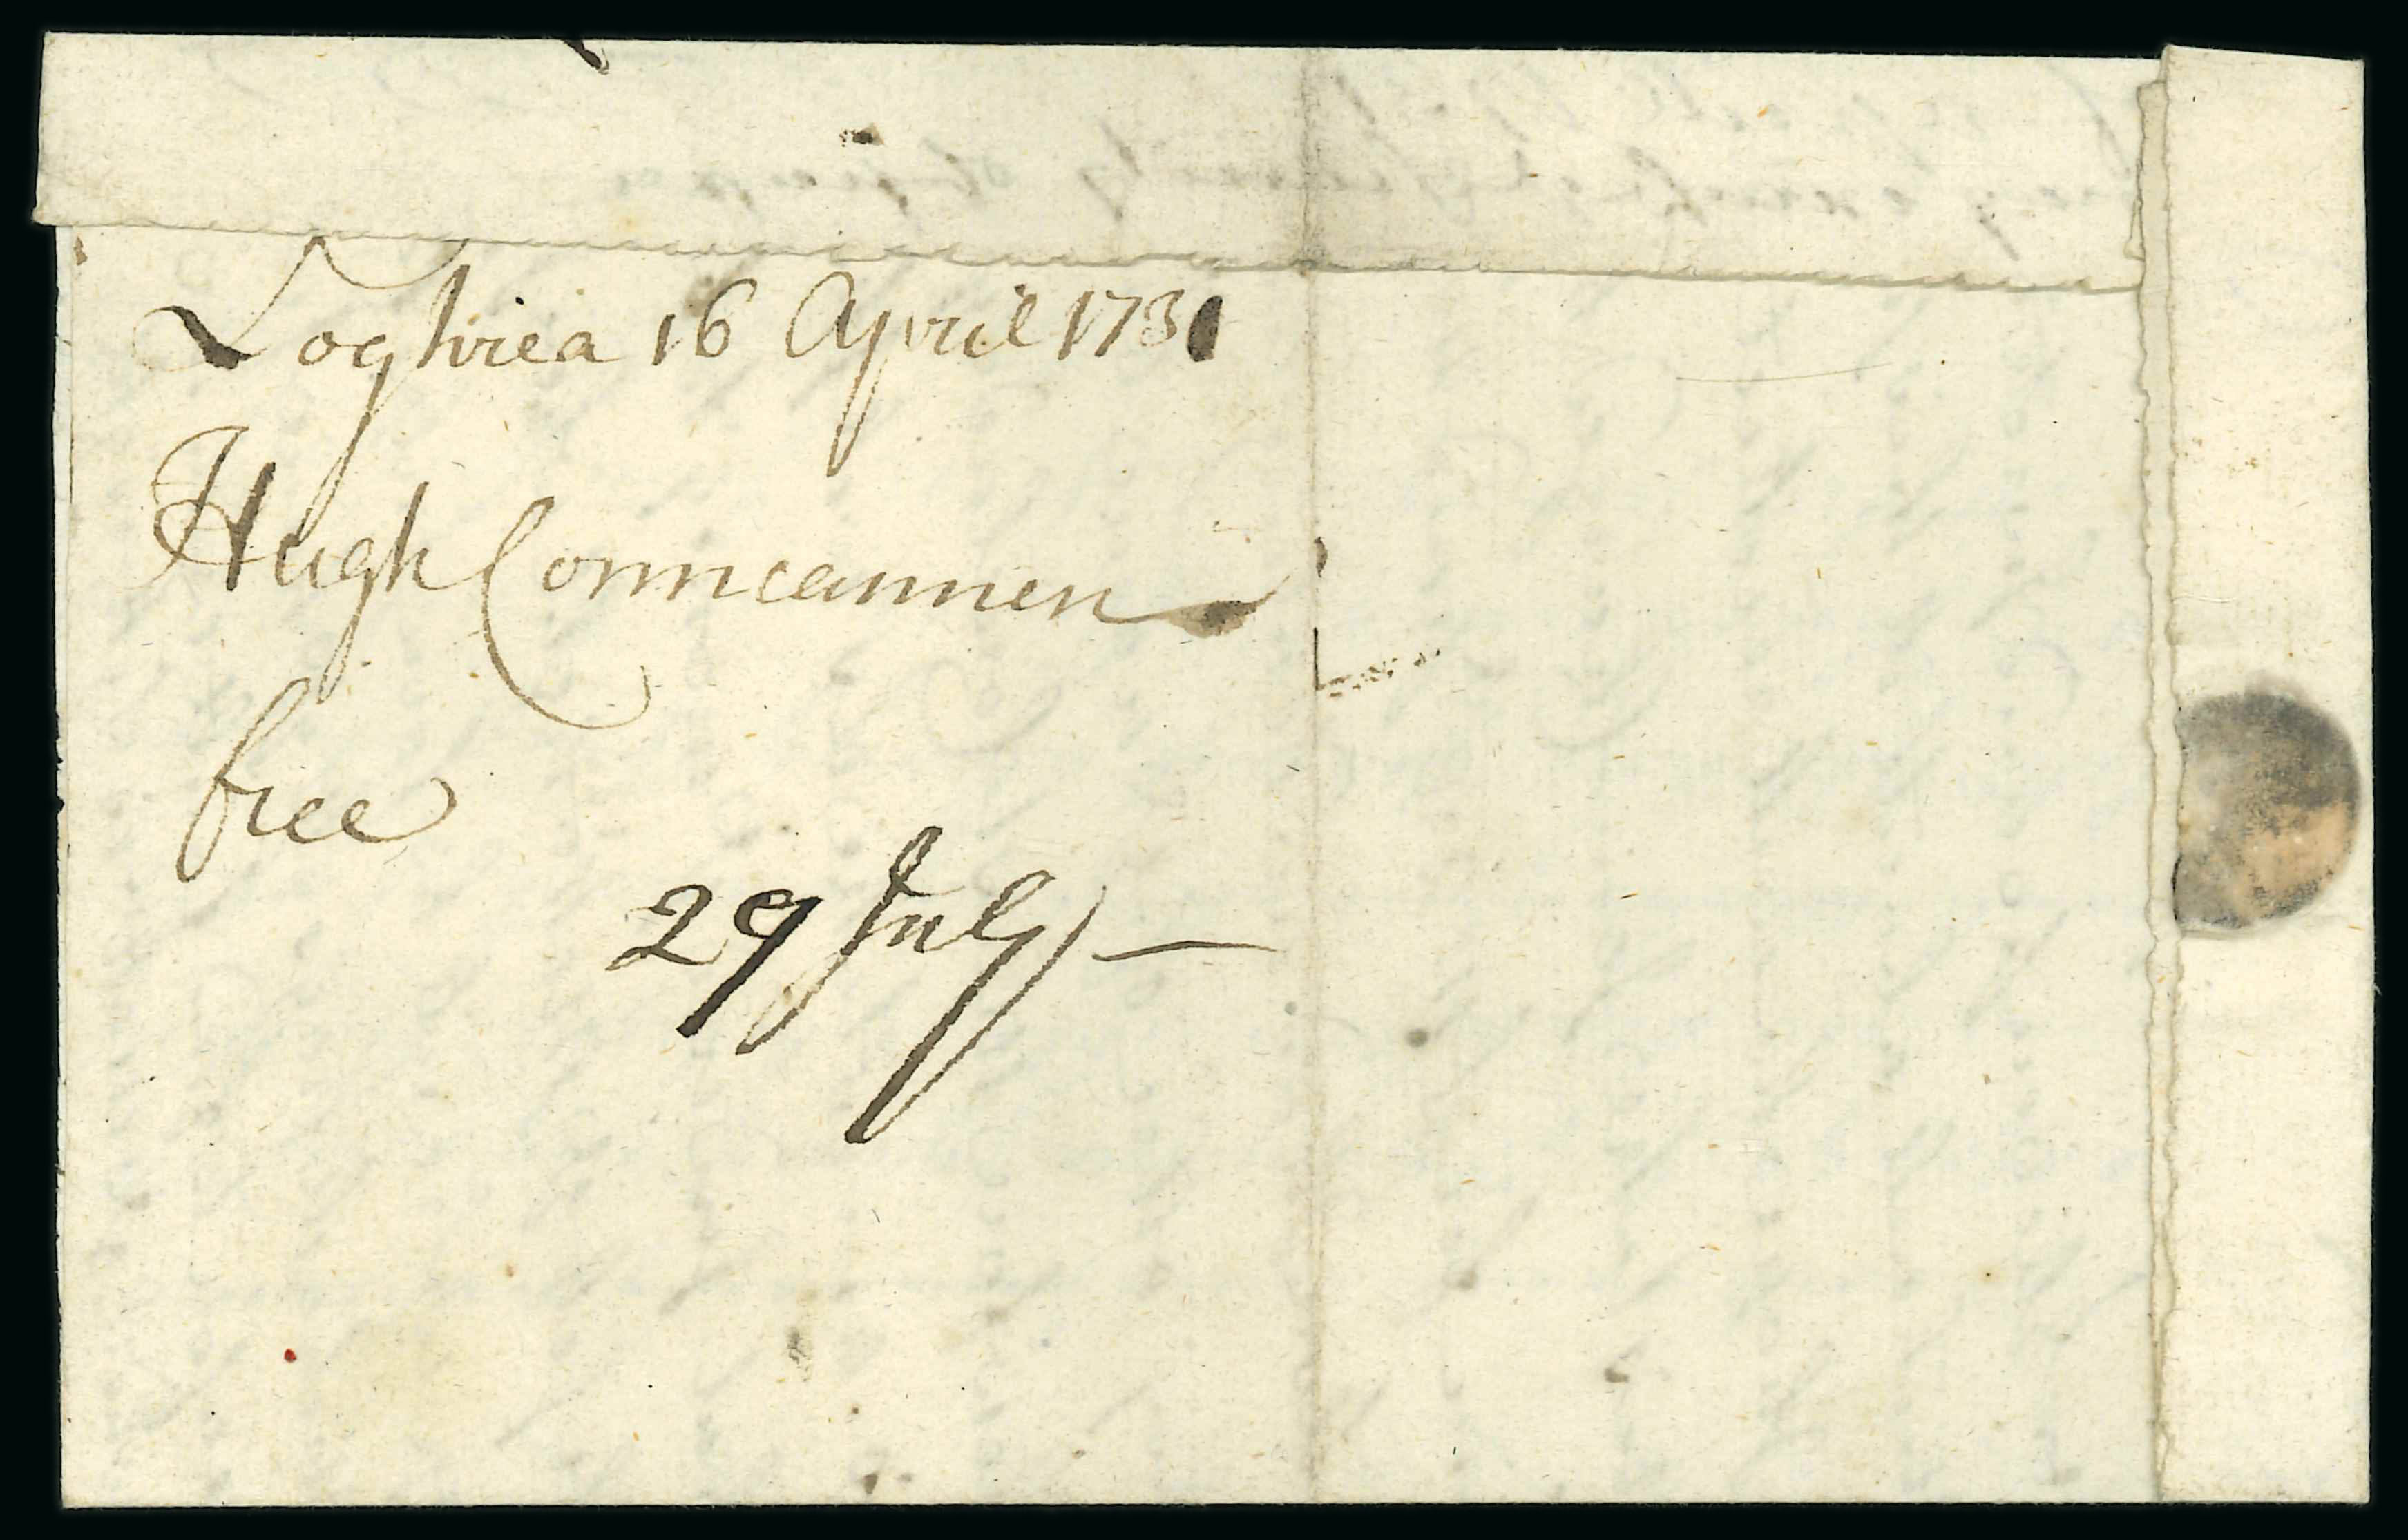 Loghrea 16 April 1731
Hugh Conncannen
free
29 July —